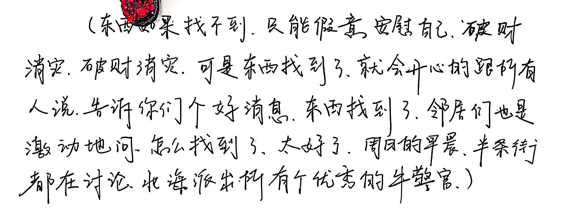 (东西如果找不到.只能假意安慰自己.破财
消灾.破财消灾.可是东西找到了、就会开心的跟所有
人说.告诉你们个好消息、东西找到了.邻居们也是
激动地问.怎么找到了、太好了、周日的早晨、半条街
都在讨论.北海派出所有个优秀的牛警官.)